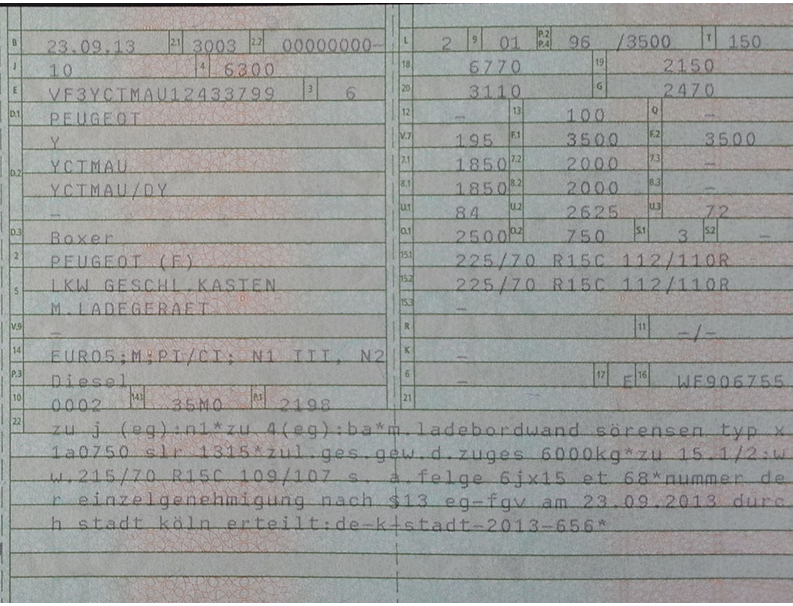 B 23.09.13 2.1 3003 2.2 00000000- L 2 9 01 P.2 P.4 96 /3500 T 150
J 10 4 6300 18 6770 19 2150
E VF3YCTMAU12433799 3 6 20 3110 G 2470
D.1 PEUGEOT 12 - 13 100 Q -
Y V.7 195 F.1 3500 F.2 3500
D.2 YCTMAU 7.1 1850 7.2 2000 7.3 -
YCTMAU/DY 8.1 1850 8.2 2000 8.3 -
- U.1 84 U.2 2625 U.3 72
D.3 Boxer O.1 2500 O.2 750 S.1 3 S.2 -
2 PEUGEOT (F) 15.1 225/70 R15C 112/110R
5 LKW GESCHL.KASTEN 15.2 225/70 R15C 112/110R
M.LADEGERAET 15.3 -
V.9 - R 11 -/-
14 EURO5;M;PI/CI; N1 III, N2 K -
P.3 Diesel 6 - 17 E 16 WF906755
10 0002 14.1 35M0 P.1 2198 21
22 zu j (eg):n1*zu 4(eg):ba*m.ladebordwand sörensen typ x
1a0750 slr 1315*zul.ges.gew.d.zuges 6000kg*zu 15.1/2:w
w.215/70 R15C 109/107 s. a.felge 6jx15 et 68*nummer de
r einzelgenehmigung nach §13 eg-fgv am 23.09.2013 durc
h stadt köln erteilt:de-k-stadt-2013-656*